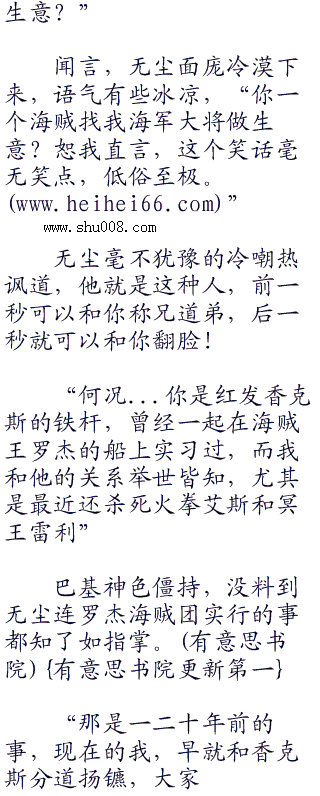 生意？”
闻言，无尘面庞冷漠下
来，语气有些冰凉，“你一
个海贼找我海军大将做生
意？恕我直言，这个笑话毫
无笑点，低俗至极。
(www.heihei66.com)”
www.shu008.com
无尘毫不犹豫的冷嘲热
讽道，他就是这种人，前一
秒可以和你称兄道弟，后一
秒就可以和你翻脸！
“何况...你是红发香克
斯的铁杆，曾经一起在海贼
王罗杰的船上实习过，而我
和他的关系举世皆知，尤其
是最近还杀死火拳艾斯和冥
王雷利”
巴基神色僵持，没料到
无尘连罗杰海贼团实行的事
都知了如指掌。(有意思书
院){有意思书院更新第一}
“那是一二十年前的
事，现在的我，早就和香克
斯分道扬镳，大家